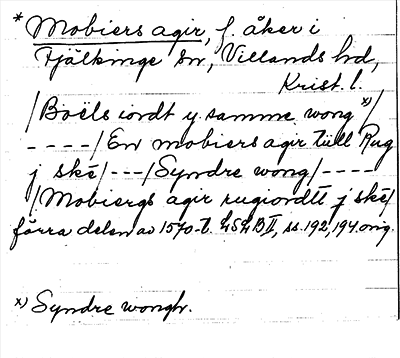 * Mobiers agir, f. åker i
Fjälkinge sn, Villands hd,
Krist. l.
/Boëls iordt y samme wong x)/
----/En mobiers agir tüll Rug
j skë/---/Syndre wong/----
/Mobiergs agir rugiordtt j skë/
förra delen av 1570-t. LSLB II, ss. 192, 194 orig.
x) Syndre wongh.